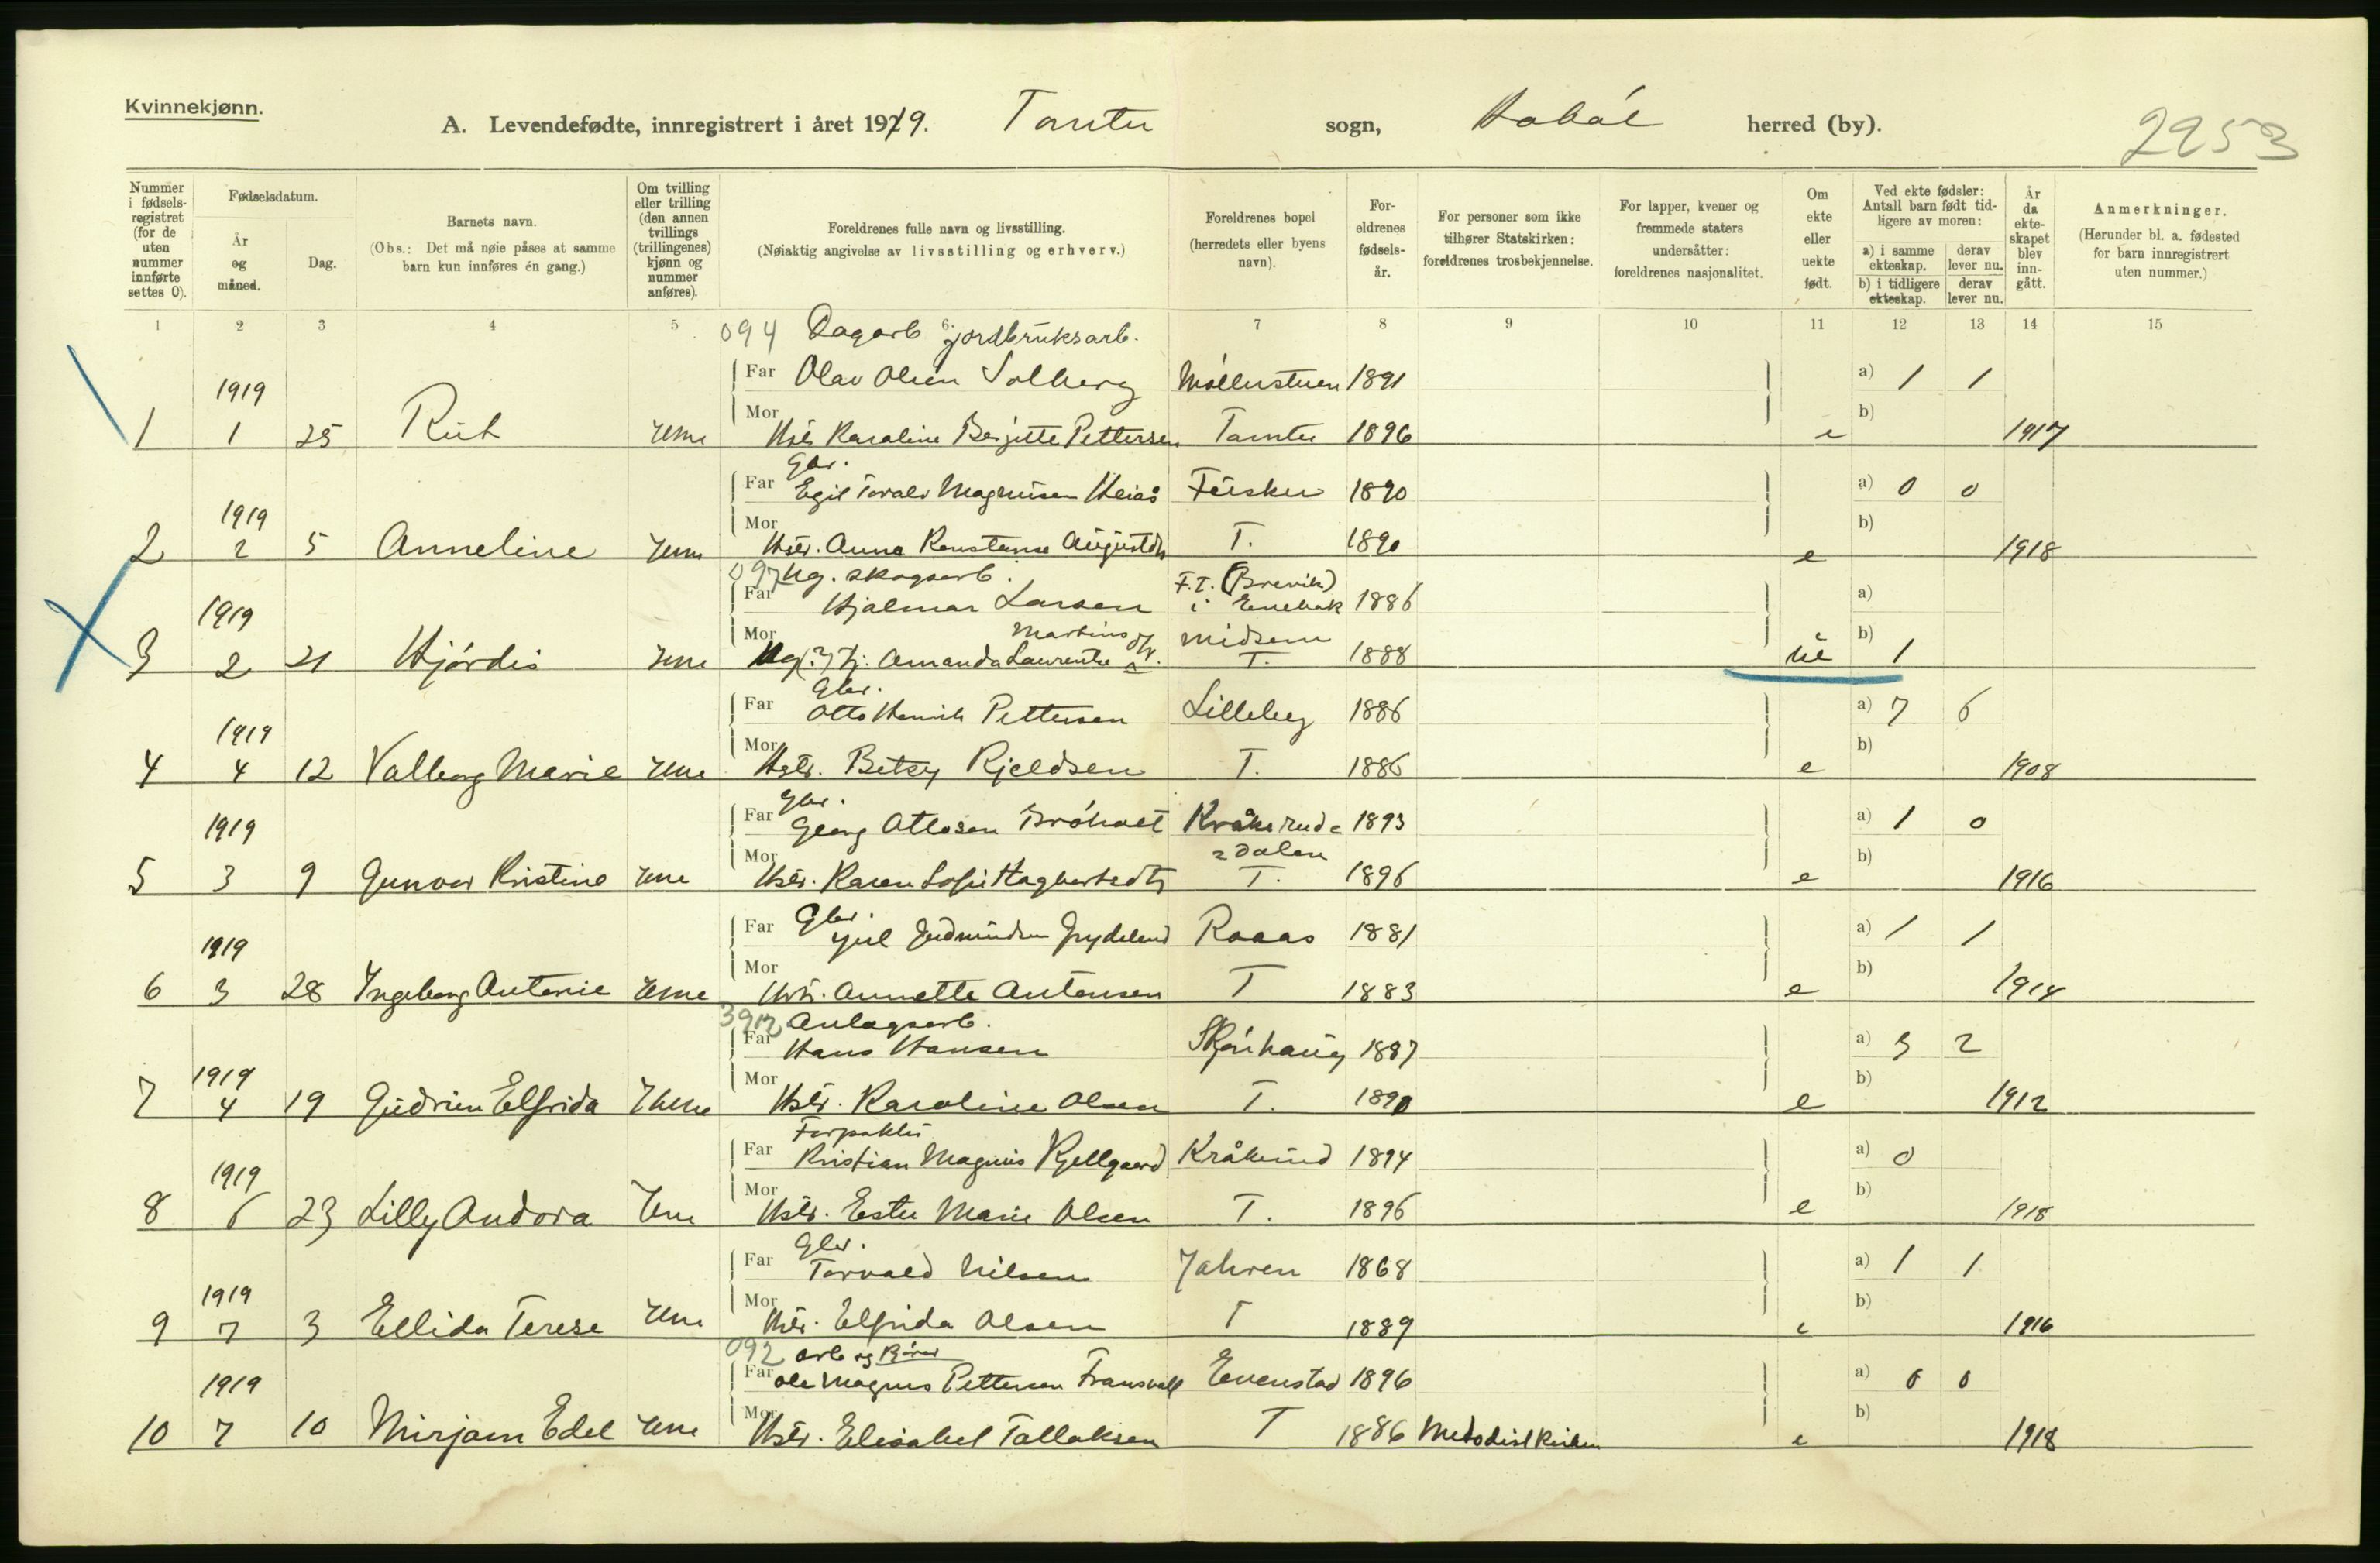 Kvinnekjønn.
A. Levendefødte, innregistrert i året 1919. Tomter sogn, Hobøl herred (by). 2253
Nummer i fødselsregistret (for de uten nummer innførte settes 0).
Fødselsdatum.
År og måned.
Dag.
Barnets navn.
(Obs.: Det må nøie påses at samme barn kun innføres én gang.)
Om tvilling eller trilling (den annen tvillings (trillingenes) kjønn og nummer anføres).
Foreldrenes fulle navn og livsstilling.
(Nøiaktig angivelse av livsstilling og erhverv.)
Foreldrenes bopel (herredets eller byens navn).
Foreldrenes fødselsår.
For personer som ikke tilhører Statskirken: foreldrenes trosbekjennelse.
For lapper, kvener og fremmede staters undersåtter: foreldrenes nasjonalitet.
Om ekte eller uekte født.
Ved ekte fødsler: Antall barn født tidligere av moren:
a) i samme ekteskap.
derav lever nu.
b) i tidligere ekteskap.
derav lever nu.
År da ekteskapet blev inngått.
Anmerkninger.
(Herunder bl. a. fødested for barn innregistrert uten nummer.)
1 2 3 4 5 6 7 8 9 10 11 12 13 14 15
094 Dagarb jordbruksarb.
Far Olav Olsen Solberg Møllerstuen 1891 a) 1 1
1919
Mor b)
1 1 25 Rut Hstr. Karoline Bergitte Pettersen Tomter 1896 e 1917
Gbr.
Far Egil Toralv Magnusen 1890 a) 0 0
1919
Mor b)
2 2 5 Anneline Hstr. Anna Konstanse T. 1890 e 1918
097 Ug. skogsarb. F.T. (Brevik)
Far Hjalmar Larsen i Enebak 1886 a)
1919
Mor Martins Midsem b)
3 2 21 Hjørdis Ug (?) tj: Amanda Laurentse T. 1888 ue 1
Gbr.
Far Otto Henrik Pettersen Lilleby 1886 a) 7 6
1919
Mor b)
4 4 12 Valborg Marie Hstr. Betsy Kjeldsen T. 1886 e 1908
Gbr.
Far Georg Ottosen Brøholt Kråkeruds 1893 a) 1 0
1919
Mor dalen b)
5 3 9 Gunvor Kristine Hstr. Karen Sofie T. 1896 e 1916
Gbr.
Far Gudmundsen Raaas 1881 a) 1 1
1919
Mor b)
6 3 28 Ingeborg Antonie Hstr. Annette Antonsen T 1883 e 1914
3912 Anlagsarb.
Far Hans Hansen Skjønhaug 1887 a) 3 2
1919
Mor b)
7 4 19 Gudrun Elfrida Hstr. Karoline Olsen T. 1890 e 1912
Forpakter
Far Kristian Magnus Kjellgaard Kråkerud 1894 a) 0
1919
Mor b)
8 6 23 Lilly Andora Hstr. Ester Marie Olsen T. 1896 e 1918
Gbr.
Far Torvald Nilsen Jahren 1868 a) 1 1
1919
Mor b)
9 7 3 Ellida Terese Hstr. Elfrida Olsen T 1889 e 1916
092 arb og
Far Ole Magnus Pettersen Evenstad 1896 a) 0 0
1919
Mor b)
10 7 10 Mirjam Edel Hstr. Elisabet Tollaksen T 1886 Metodistkirken e 1918